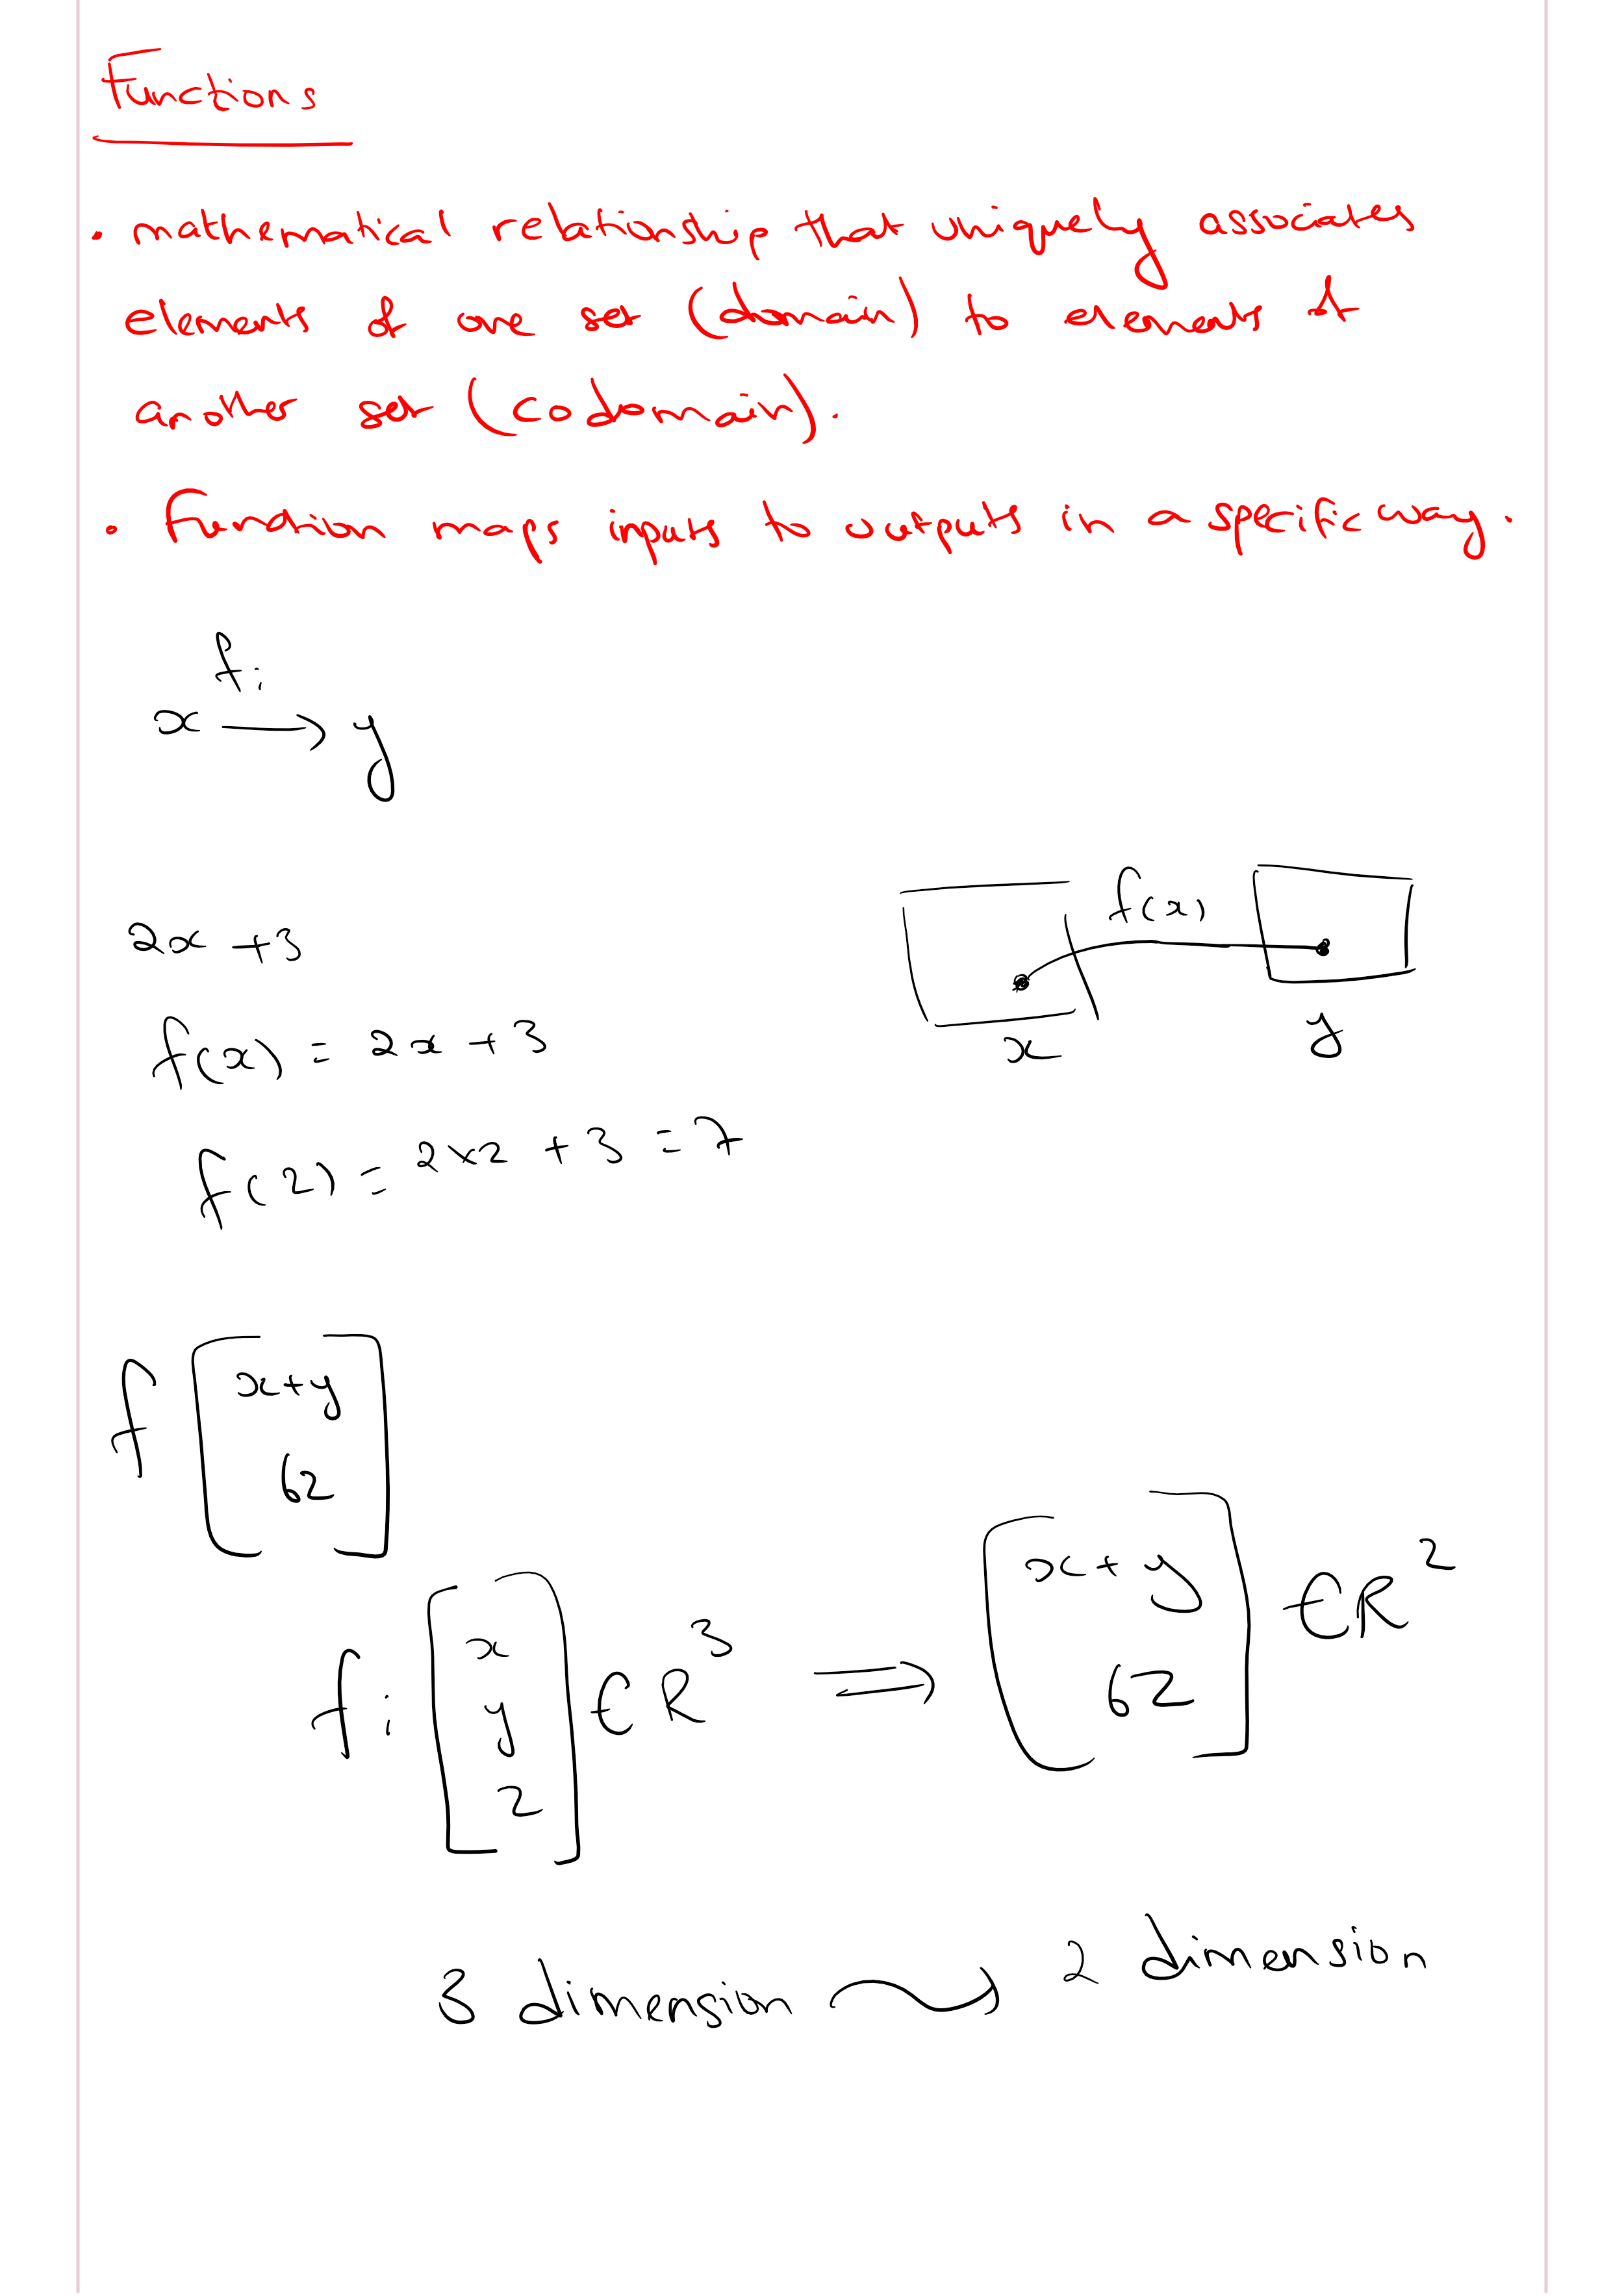 Functions
· mathematical relationship that uniquely associates
elements of one set (domain) to elements of
another set (codomain).
· Function maps inputs to outputs in a specific way.
f:
x → y
2x + 3
f(x)
f(x) = 2x + 3
x
y
f(2) = 2×2 + 3 = 7
f [ x+y
6z ]
f: [ x
y
z ] ∈ R³ ⇒ [ x+y
6z ] ∈ R²
3 dimension → 2 dimension